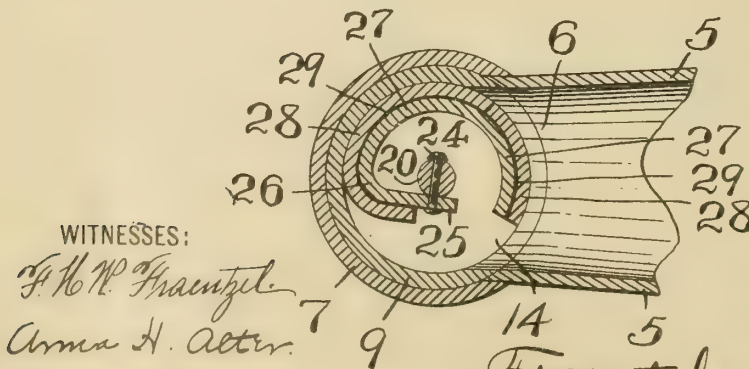 27
6
5
29
28
24
20
26
27
29
28
25
WITNESSES:
F. H. W. Fraentzel.
Anna H. Alter.
7
9
14
5